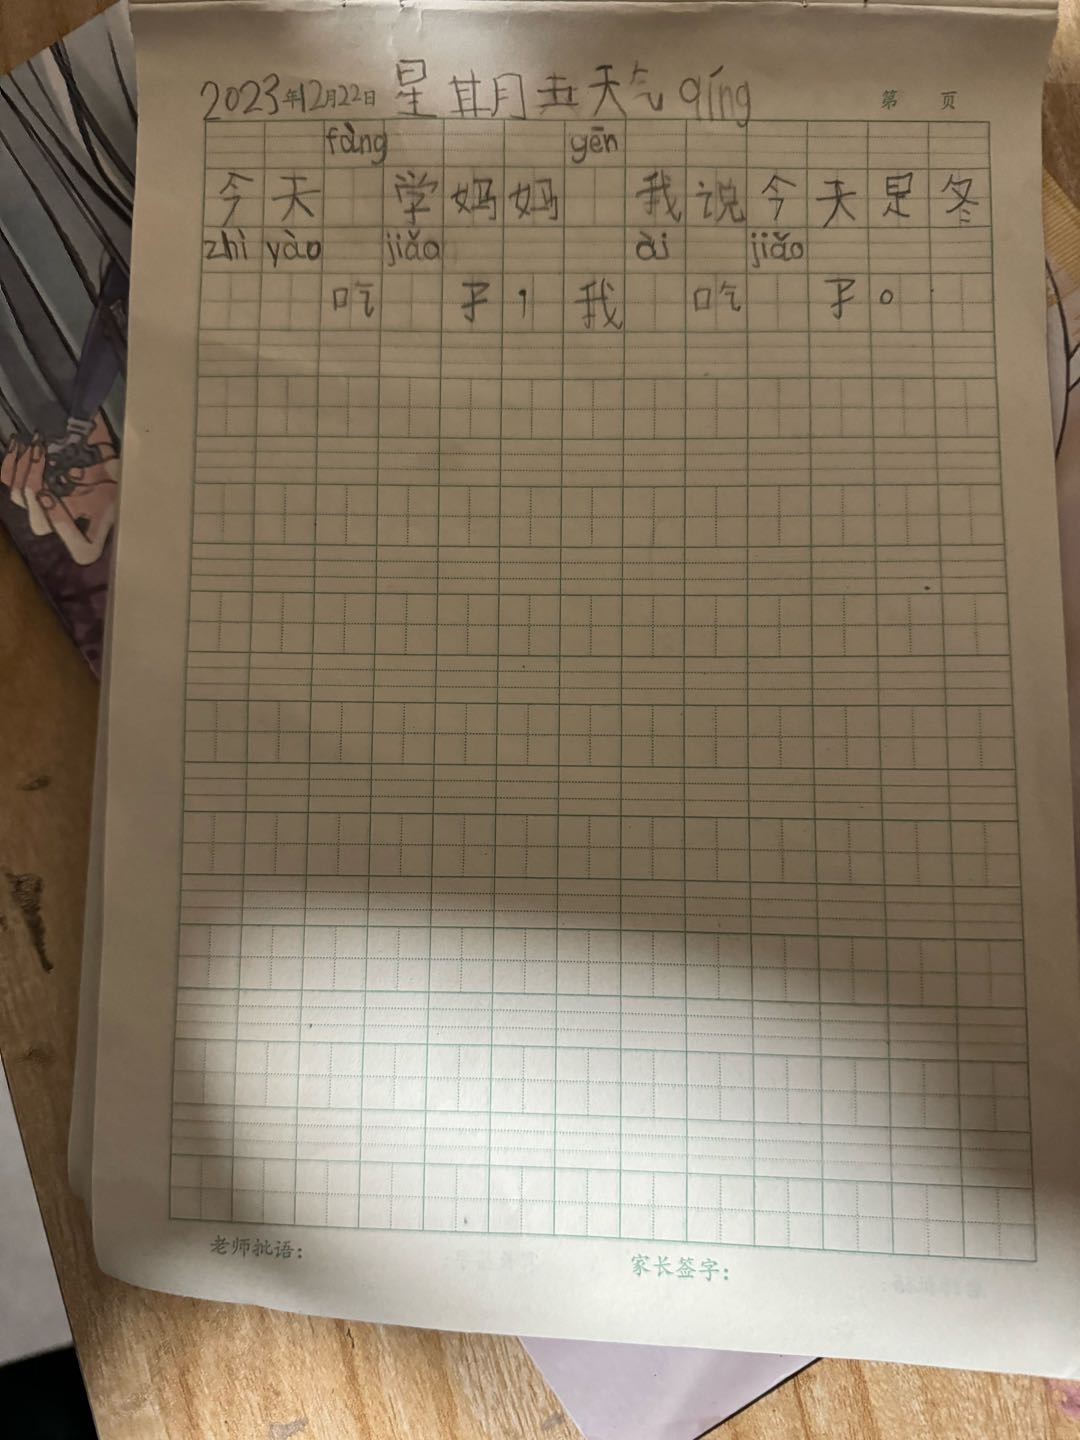 2023年12月22日 星其月五天气qíng 第 页
fàng gēn
今天 学妈妈 我说今天是冬
zhì yào jiǎo ài jiǎo
吃 子，我 吃 子。
老师批语： 家长签字：